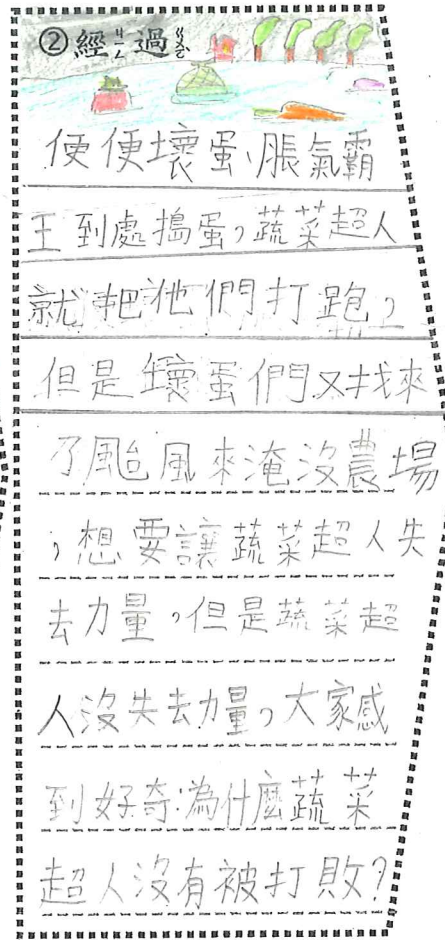 ②經ㄐㄧㄥ過ㄍㄨㄛˋ
便便壞蛋、脹氣霸
王到處搗蛋，蔬菜超人
就把他們打跑，
但是壞蛋們又找來
了颱風來淹沒農場
，想要讓蔬菜超人失
去力量，但是蔬菜超
人沒失去力量，大家感
到好奇:為什麼蔬菜
超人沒有被打敗?